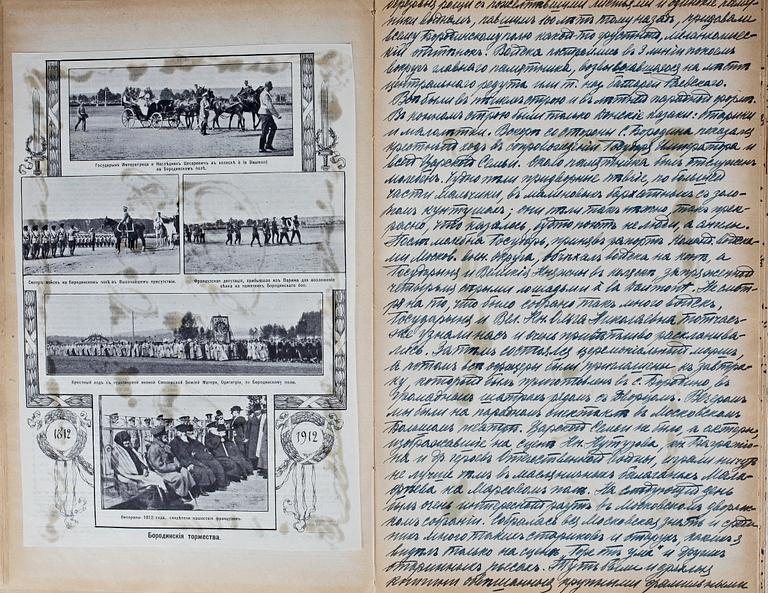 Государыня Императрица и Наслѣдникъ Цесаревичъ въ коляскѣ à la Daumont
на Бородинскомъ полѣ.
Смотръ войскъ на Бородинскомъ полѣ въ Высочайшемъ присутствіи.
Французская депутація, прибывшая изъ Парижа для возложенія
вѣнка на памятникъ Бородинскаго боя.
Крестный ходъ съ чудотворной иконой Смоленской Божіей Матери, Одигитріи, по Бородинскому полю.
1812
1912
Ветераны 1812 года, свидѣтели нашествія французовъ.
Бородинскія торжества.
всему Бородинскому полю
кій пѣтинскъ. Войска построились въ 3 линіи покоемъ
вокругъ главнаго памятника, возвышавшагося на мѣстѣ
центральнаго редута или т. наз. батареи Раевскаго.
Всѣ были въ пѣшемъ строю и въ лѣтней парадной формѣ.
Въ конномъ строю были только Донскіе казаки: старики
и малолѣтки. Вскорѣ со стороны с. Бородина показался
крестный ходъ въ сопровожденіи Государя Императора и
всей Царской Семьи. Около памятника былъ отслуженъ
молебенъ. Чудно пѣли придворные пѣвчіе, по большей
части мальчики, въ малиновыхъ бархатныхъ съ золо-
томъ кунтушахъ; они пѣли такъ нѣжно такъ прек-
расно, что казалось, будто поютъ не люди, а ангелы.
Послѣ молебна Государь, принявъ рапортъ
ми Москов. воен. округа, объѣхалъ войска на конѣ, а
Государыня и Великія Княжны въ коляскѣ, запряженной
четверкой лошадьми à la Daumont. Не смот-
ря на то, что было собрано такъ много войскъ,
Государыня и Вел. Кн. Ольга Николаевна тотчасъ-
же узнали насъ и очень привѣтливо раскланива-
лись. Затѣмъ состоялся церемоніальный маршъ,
а потомъ всѣ офицеры были приглашены къ завтра-
ку, который былъ приготовленъ въ с. Бородино, въ
громадномъ шатрѣ рядомъ съ Дворцомъ. Вечеромъ
мы были на парадномъ спектаклѣ въ Московскомъ
Большомъ театрѣ. Царской Семьи не было, а актеры,
изображавшіе на сценѣ Кн. Кутузова, кн. Багратіо-
на и др. героевъ Отечественной войны, играли ничуть
не лучше чѣмъ въ масляничныхъ балаганахъ
на Марсовомъ полѣ. На слѣдующій день
былъ очень интересный раутъ въ Московскомъ дворян-
скомъ собраніи. Собралась вся Московская знать и среди
нихъ много такихъ стариковъ и старухъ, какихъ я
видѣлъ только на сценѣ "Горе отъ ума" и другихъ
старинныхъ пьесахъ. Тутъ были и дряхлыя